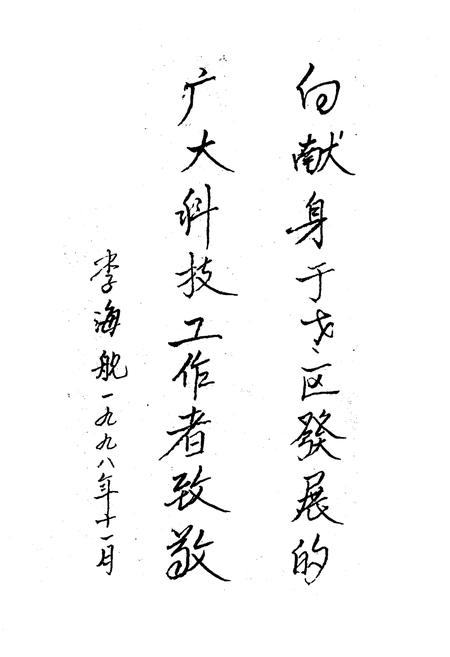 向献身于老区發展的
广大科技工作者致敬
李海航一九九八年十一月